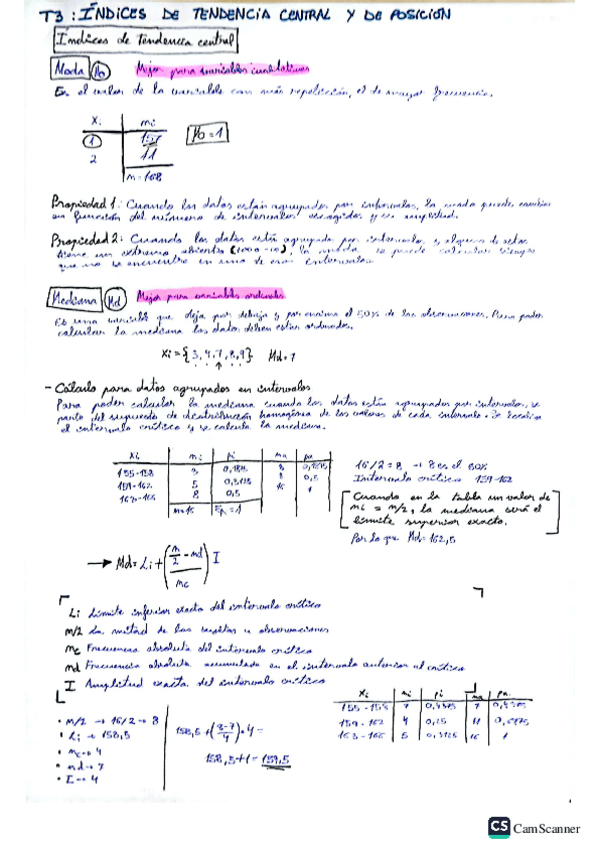 T3: ÍNDICES DE TENDENCIA CENTRAL Y DE POSICIÓN
Índices de tendencia central
Moda Mo Mejor para variables cualitativas
Es el valor de la variable con más repetición, el de mayor frecuencia.
Xi ni
1 157
2 11
n=168
Mo=1
Propiedad 1: Cuando los datos están agrupados por intervalos, la moda puede cambiar
en función del número de intervalos escogidos y su amplitud.
Propiedad 2: Cuando los datos están agrupados por intervalos y alguno de estos
tiene un extremo abierto, la moda se puede calcular siempre
que no se encuentre en uno de esos intervalos.
Mediana Md Mejor para variables ordinales
Es una variable que deja por debajo y por encima el 50% de las observaciones. Para poder
calcular la mediana los datos deben estar ordenados.
Xi={3,4,7,8,9} Md=7
- Cálculo para datos agrupados en intervalos
Para poder calcular la mediana cuando los datos están agrupados por intervalos, se
parte del supuesto de distribución homogénea de los valores de cada intervalo. Se localiza
el intervalo crítico y se calcula la mediana.
Xi ni pi na pa
155-158 3 0,1875 3 0,1875
159-162 5 0,3125 8 0,5
163-166 8 0,5 16 1
n=16 =1
16/2=8 → 8 es el 50%
Intervalo crítico 159-162
Cuando en la tabla un valor de
= n/2, la mediana será el
límite superior exacto.
Por lo que Md=162,5
→ Md= Li+((n/2 - nd)/nc) I
Li Límite inferior exacto del intervalo crítico
n/2 La mitad de los sujetos u observaciones
nc Frecuencia absoluta del intervalo crítico
nd Frecuencia absoluta acumulada en el intervalo anterior al crítico
I Amplitud exacta del intervalo crítico
Xi ni pi na pa
155-158 7 0,4375 7 0,4375
159-162 4 0,25 11 0,6875
163-166 5 0,3125 16 1
• n/2 → 16/2 = 8
• Li → 158,5
• nc → 4
• nd → 7
• I → 4
158,5+((8-7)/4)·4=
158,5+1= 159,5
CS CamScanner